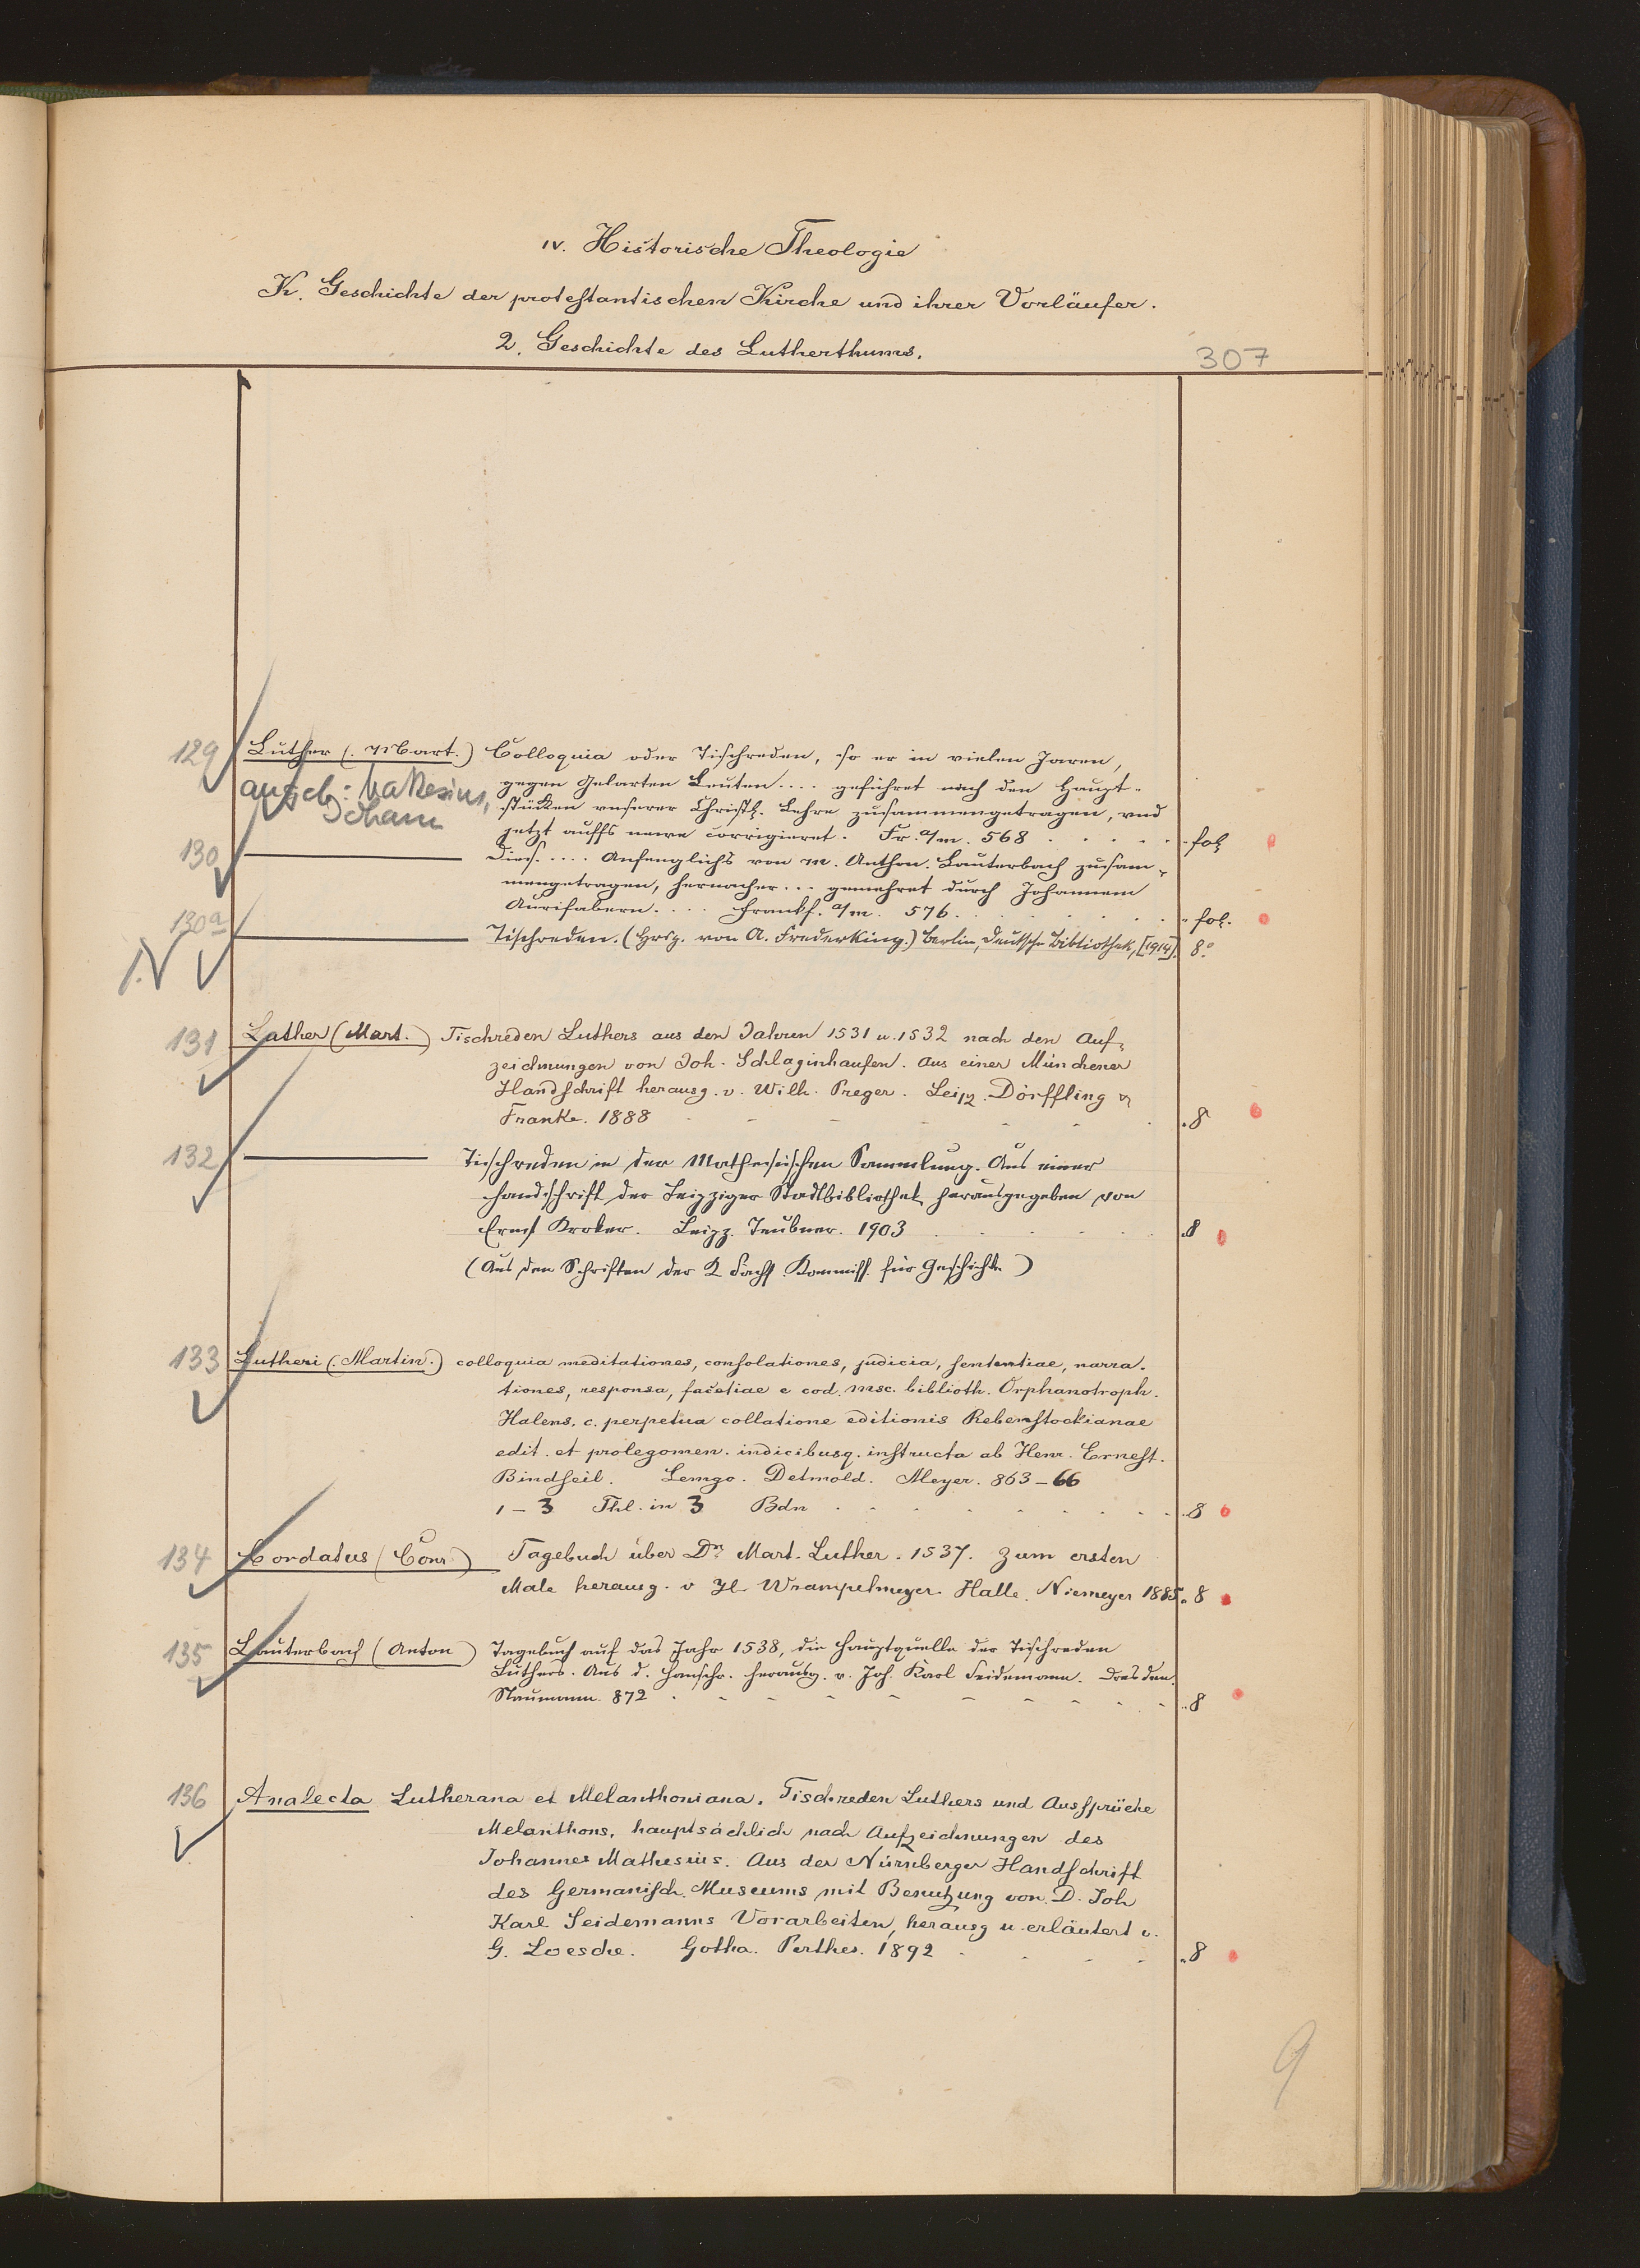 IV. Historische Theologie
K. Geschichte der protestantischen Kirche und ihrer Vorläufer.
2. Geschichte des Lutherthums.
307
129 Luther (Mart.) Colloquia oder Tischreden, so er in vielen Jaren,
gegen Gelarten Leuten .... geführet nach den Haupt-
stücken unserer Christl. Lehre zusammengetragen, und
jetzt auffs neue corrigieret. Fr. a/m. 568 . fol
angeb: Mathesius,
Johann
130 ——— Dies. .... Anfenglichs von M. Anthon. Lauterbach zusam-
mengetragen, hernacher ... gemehret durch Johannem
Aurifabern. .... Frankf. a/m. 576. . fol.
130a ——— Tischreden. (Hrsg. von A. Frederking.) Berlin, Deutsche Bibliothek, [1914]. 8°
N
131 Luther (Mart.) Tischreden Luthers aus den Jahren 1531 u. 1532 nach den Auf-
zeichnungen von Joh. Schlaginhaufen. Aus einer Münchener
Handschrift herausg. v. Wilh. Preger. Leipz. Dörffling &
Franke. 1888 . 8
132 ——— Tischreden in der Mathesischen Sammlung. Aus einer
Handschrift der Leipziger Stadtbibliothek herausgegeben von
Ernst Kroker. Leipz. Teubner. 1903 . 8
(Aus den Schriften der K Sächs. Kommiss. für Geschichte)
133 Lutheri (Martin.) colloquia meditationes, consolationes, judicia, sententiae, narra-
tiones, responsa, facetiae e cod. msc. biblioth. Orphanotroph.
Halens. c. perpetua collatione editionis Rebenstockianae
edit. et prolegomen. indicibusq. instructa ab Henr. Ernest.
Bindseil. Lemgo. Detmold. Meyer. 863-66
1-3 Thl. in 3 Bdn . 8
134 Cordatus (Conr) Tagebuch über Dr. Mart. Luther. 1537. Zum ersten
Male herausg. v H. Wrampelmeyer. Halle. Niemeyer 1885. 8
135 Lauterbach (Anton) Tagebuch auf das Jahr 1538, die Hauptquelle der Tischreden
Luthers. Aus d. Handschr. herausg. v. Joh. Karl Seidemann. Dresden.
Naumann. 872 . 8
136 Analecta Lutherana et Melanthoniana. Tischreden Luthers und Aussprüche
Melanthons, hauptsächlich nach Aufzeichnungen des
Johannes Mathesius. Aus der Nürnberger Handschrift
des Germanisch. Museums mit Benutzung von D. Joh
Karl Seidemanns Vorarbeiten, herausg u. erläutert v.
G. Loesche. Gotha. Perthes. 1892 . 8
9